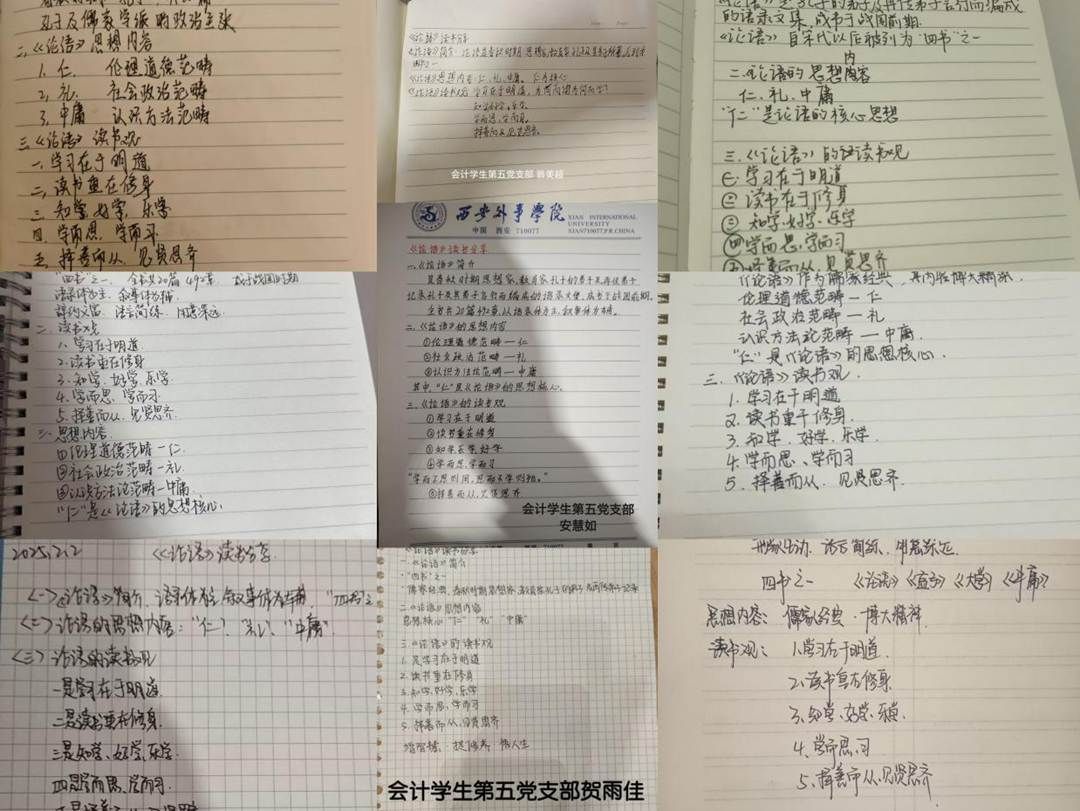 孔子及儒家学派的政治主张
二.《论语》思想内容
1. 仁. 伦理道德范畴
2. 礼. 社会政治范畴
3. 中庸 认识方法范畴
三.《论语》读书观
一.学习在于明道
二.读书重在修身
三.知学.好学、乐学
四.学而思.学而习
五.择善而从.见贤思齐
《论语》读书分享
知学好学,乐学
学而思,学而习
择善而从,见贤思齐
会计学生第五党支部
的语录文集,成书于战国前期.
《论语》自宋代以后被列为"四书"之一
内
二.论语的思想内容
仁.礼.中庸
"仁"是论语的核心思想
三.《论语》的读书观
① 学习在于明道
② 读书在于修身
③ 知学.好学、乐学
④学而思、学而习
⑤择善而从、见贤思齐
"四书"之一 全书共20篇492章. 成于战国前期
语录体为主. 叙事体为辅.
辞约义富. 语言简练. 用意深远.
二.读书观
1. 学习在于明道.
2.读书重在修身
3.知学.好学.乐学.
4.学而思.学而习.
5.择善而从.见贤思齐.
三.思想内容
①伦理道德范畴—仁.
②社会政治范畴—礼
③认识方法论范畴—中庸
"仁"是《论语》的思想核心.
西安外事学院
XIAN INTERNATIONAL
UNIVERSITY
中国 西安 710077
XIAN710077,P.R.CHINA
《论语》读书分享
一.《论语》简介
是春秋时期思想家,教育家孔子的弟子及再传弟子
记录孔子及其弟子言行而编成的语录文集,成书于战国前期.
全书共20篇492章,以语录体为主,叙事体为辅.
二.《论语》的思想内容
①伦理道德范畴—仁
②社会政治范畴—礼
③认识方法论范畴—中庸
其中,"仁"是《论语》的思想核心.
三.《论语》的读书观
①学习在于明道
②读书重在修身
③知学乐学,好学
④学而思,学而习
"学而不思则罔,思而不学则殆."
⑤择善而从,见贤思齐
会计学生第五党支部
安慧如
《论语》作为儒家经典,其内容博大精深.
伦理道德范畴—仁
社会政治范畴—礼
认识方法论范畴—中庸.
"仁"是《论语》的思想核心.
三.《论语》读书观.
1.学习在于明道
2.读书重于修身.
3.知学、好学、乐学.
4.学而思、学而习
5.择善而从、见贤思齐.
2025.2.2 《论语》读书分享
<二>论语的思想内容:"仁"、"礼"、"中庸"
<三>论语的读书观
一是学习在于明道
二是读书重在修身.
三是知学、好学、乐学.
四是学而思、学而习.
《论语》读书分享
一.《论语》简介
"四书"之一
二.《论语》思想内容
思想核心 "仁" "礼" "中庸"
三.《论语》的读书观
1. 是学习在于明道
2. 读书重在修身
3. 知学,好学,乐学
4. 学而思,学而习
5. 择善而从,见贤思齐
会计学生第五党支部贺雨佳
形象生动. 语言简练. 用意深远.
四书之一 《论语》《孟子》《大学》《中庸》
思想内容: 儒家经典. 博大精深.
读书观: 1.学习在于明道.
2.读书重在修身.
3.知学、好学、乐学.
4.学而思.习
5.择善而从、见贤思齐